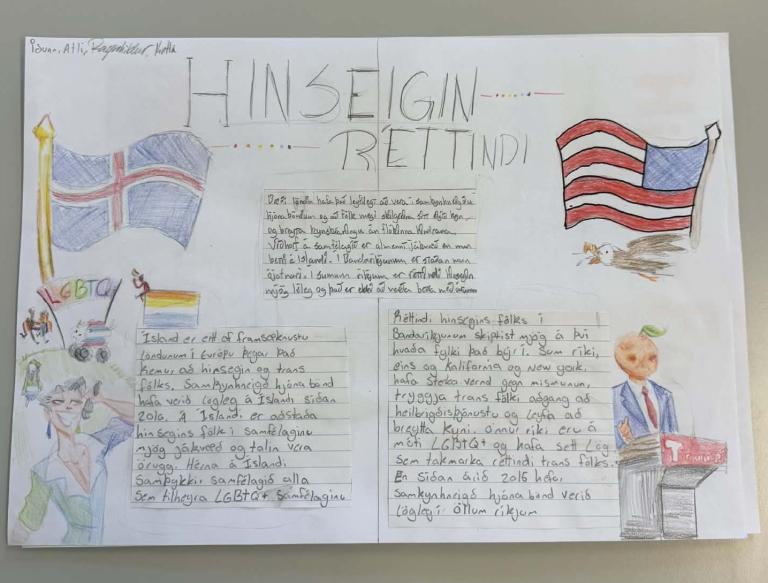 Iðunn, Atli, Ragnhildur, Katla
HINSEIGIN
RÉTTINDI
LGBTQ
bæði löndin hafa það leyfilegt að vera í samkynhneigðu
hjónaböndum og að fólk megi skilgreina sitt eigið kyn
og breyta kynskráningu án flókinna
Viðhorf á samfélagið er almennt jákvæð en mun
betri á Íslandi. Í Bandaríkjunum er staðan mun
ójafnari. Í sumum ríkjum er réttindi hinsegin
mjög léleg og það er ekki að verða betra með
Ísland er eitt af framsæknustu
löndunum í Evrópu þegar það
kemur að hinsegin og trans
fólks. Samkynhneigð hjónabond
hafa verið lögleg á Íslandi síðan
2010. Á Íslandi er aðstaða
hinsegins fólk í samfélaginu
mjög jákvæð og talin vera
örugg. Hérna á Íslandi
samþykkir samfélagið alla
sem tilheyra LGBTQ+ samfélaginu
Réttindi hinsegins fólks í
Bandaríkjunum skiptist mjög á því
hvaða fylki það býr í. Sum ríki,
eins og Kalifornía og New york,
hafa sterka vernd gegn mismunun,
tryggja trans fólki aðgang að
heilbrigðisþjónustu og leyfa að
breytta kyni. önnur ríki eru á
móti LGBTQ+ og hafa sett lög
sem takmarka réttindi trans fólks.
En síðan árið 2015 hefur
samkynhneigð hjónabond verið
lögleg í öllum ríkjum
Trump